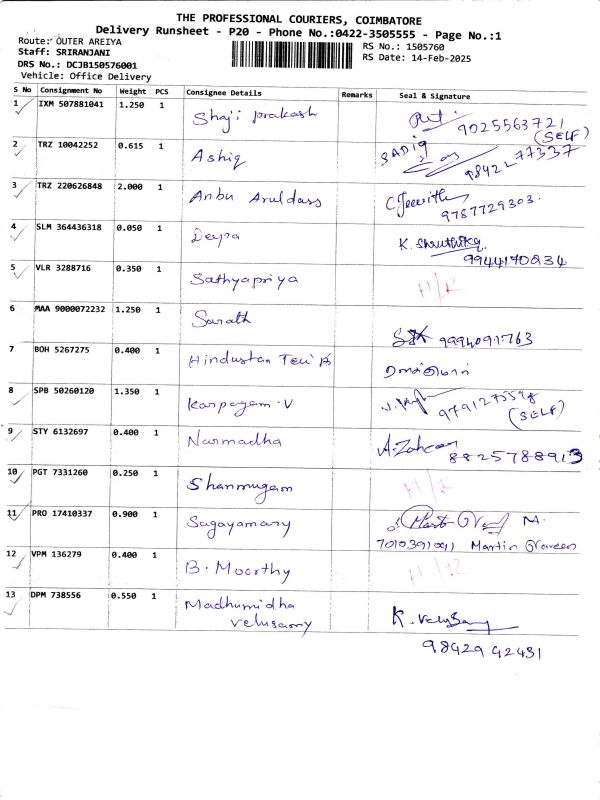 THE PROFESSIONAL COURIERS, COIMBATORE
Delivery Runsheet - P20 - Phone No.:0422-3505555 - Page No.:1
Route: OUTER AREIYA
Staff: SRIRANJANI
DRS No.: DCJB150576001
Vehicle: Office Delivery
RS No.: 1505760
RS Date: 14-Feb-2025
S No Consignment No Weight PCS Consignee Details Remarks Seal & Signature
1 IXM 507881041 1.250 1 Shaji prakash 9025563721
(SELF)
2 TRZ 10042252 0.615 1 Ashiq SADIQ 98422 77337
3 TRZ 220626848 2.000 1 Anbu Aruldass C. Jeevitha
9787729303.
4 SLM 364436318 0.050 1 Deepa K. Shruthika
9944170234
5 VLR 3288716 0.350 1 Sathyapriya
6 MAA 9000072232 1.250 1 Sarath 9994091763
7 BOH 5267275 0.400 1 Hindustan
8 SPB 50260120 1.350 1 Karpagam.V
(SELF)
9 STY 6132697 0.400 1 Narmadha
8825788913
10 PGT 7331260 0.250 1 Shanmugam
11 PRO 17410337 0.900 1 Sagayamary M.
7010391041 Martin
12 VPM 136279 0.400 1 B. Moorthy
13 DPM 738556 0.550 1 Madhumidha
velusamy K. Velusamy
98429 42431